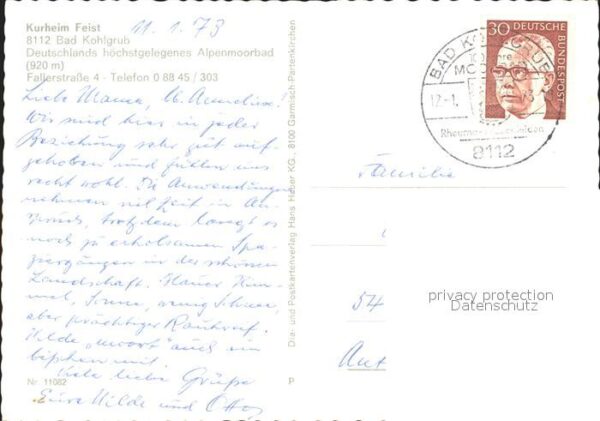 Kurheim Feist
11.1.73
8112 Bad Kohlgrub
Deutschlands höchstgelegenes Alpenmoorbad
(920 m)
Fallerstraße 4 - Telefon 0 88 45 / 303
Liebe Mama, lb. Annelise.
Wir sind hier in jeder
Beziehung sehr gut auf-
gehoben und fühlen uns
recht wohl. Die Anwendungen
nehmen viel Zeit in An-
spruch, trotzdem langt es
noch zu erholsamen Spa-
ziergängen in der schönen
Landschaft. Blauer Him-
mel, Sonne, wenig Schnee,
aber prächtiger Rauhreif.
Hilde "moort" auch ein
bißchen mit.
Viele liebe Grüße
Eure Hilde und Otto
Nr. 11082
P
Dia- und Postkartenverlag Hans Huber KG, 8100 Garmisch-Partenkirchen
30 DEUTSCHE
BUNDESPOST
BAD KOHLGRUB
12.-1.
8112
Familie
54
privacy protection
Datenschutz